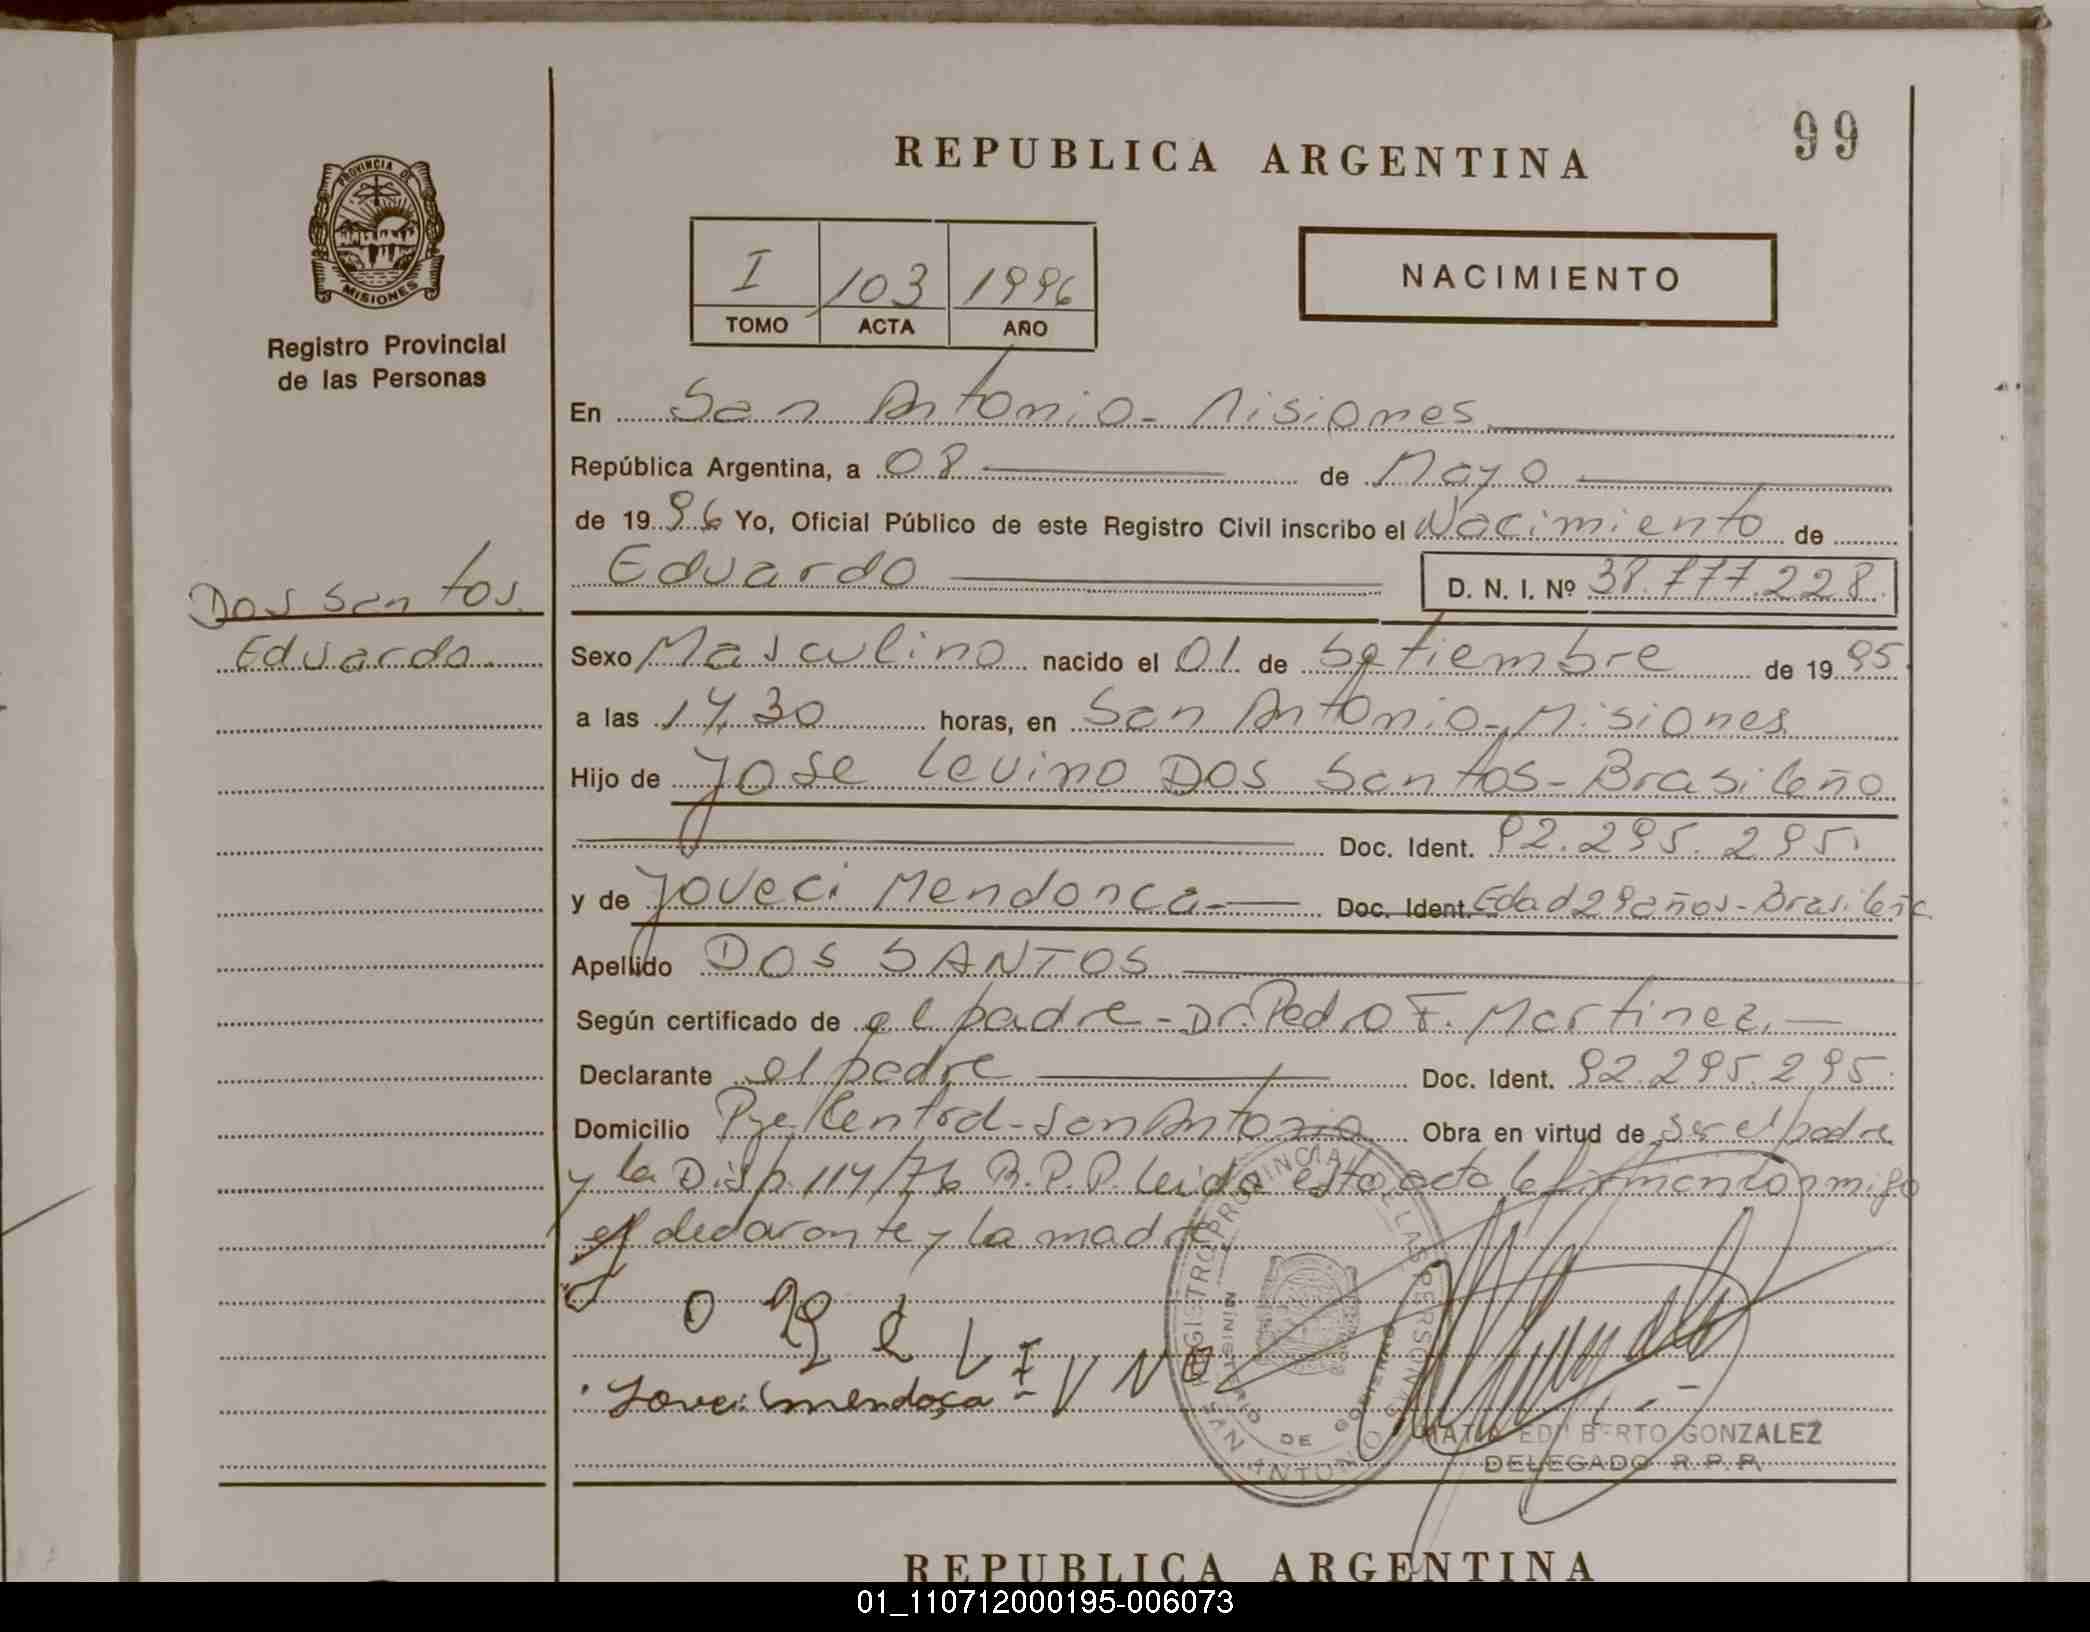 REPUBLICA ARGENTINA
99
PROVINCIA DE
MISIONES
Registro Provincial
de las Personas
I 103 1996
TOMO ACTA AÑO
NACIMIENTO
En San Antonio - Misiones
República Argentina, a 08 de Mayo
de 1996 Yo, Oficial Público de este Registro Civil inscribo el Nacimiento de
Eduardo D. N. I. Nº 38.777.228
Dos Santos
Eduardo
Sexo Masculino nacido el 01 de Setiembre de 1995
a las 14,30 horas, en San Antonio - Misiones
Hijo de Jose Levino Dos Santos - Brasileño
Doc. Ident. 92.295.295
y de Joveci Mendonca - Doc. Ident. Edad 29 años - Brasileña
Apellido DOS SANTOS
Según certificado de el padre - Dr. Pedro F. Martinez
Declarante el padre Doc. Ident. 92.295.295
Domicilio Pje Central - San Antonio Obra en virtud de ser el padre
y la Disp. 114/76 R.P.P. Leida esta acta la firman conmigo
el declarante y la madre
Joveci mendoça
REGISTRO PROVINCIAL DE LAS PERSONAS
MINISTERIO DE GOBIERNO
SAN ANTONIO
EDILBERTO GONZALEZ
DELEGADO R. P. P.
REPUBLICA ARGENTINA
01_110712000195-006073